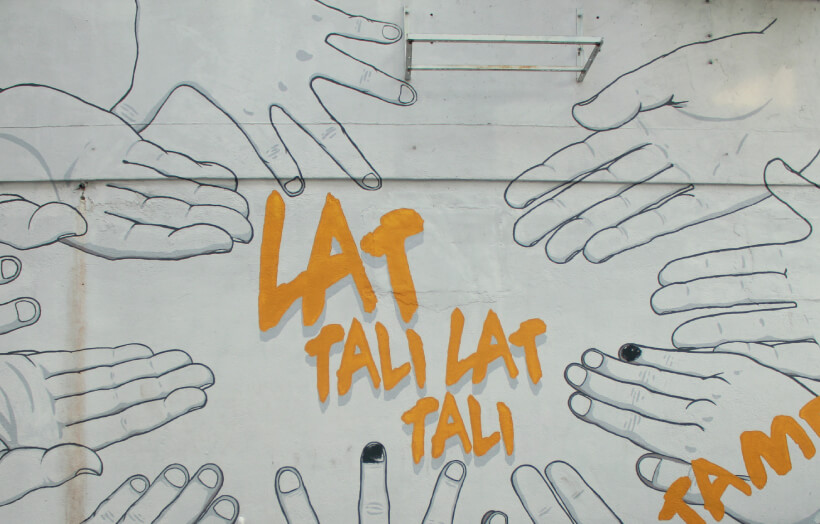 LAT
TALI LAT
TALI
TAMP